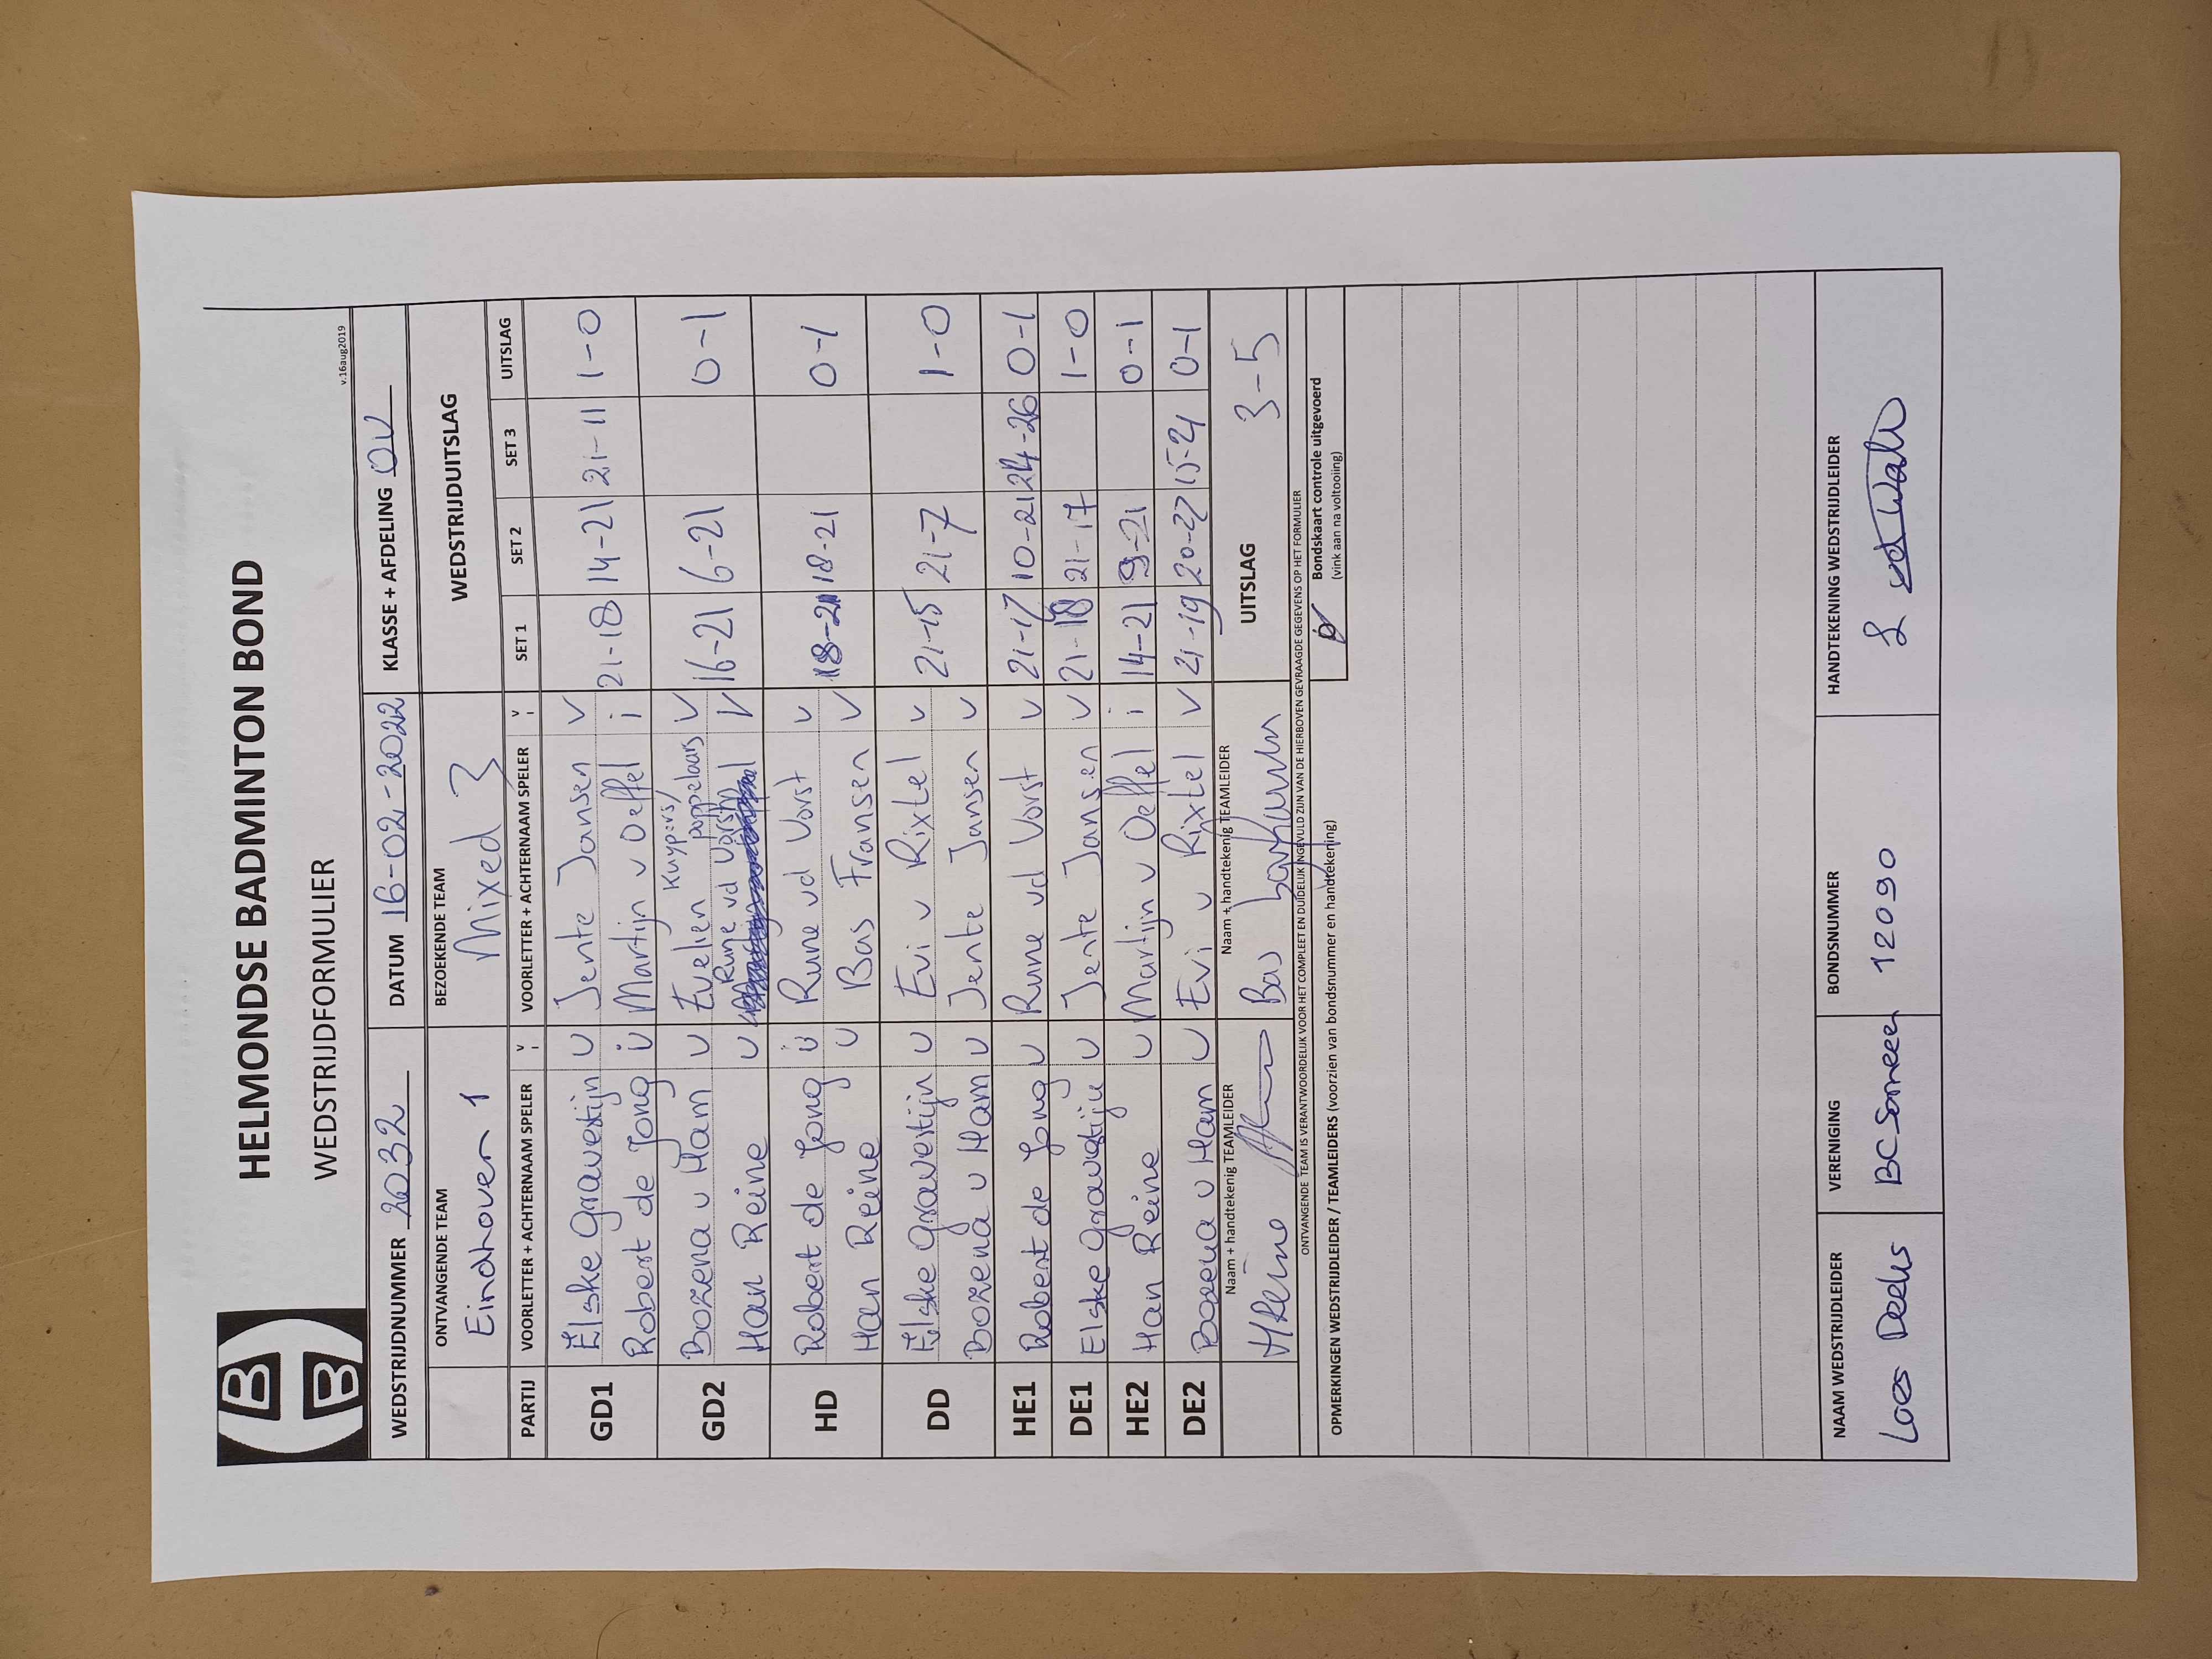 HELMONDSE BADMINTON BOND
WEDSTRIJDFORMULIER
v.16aug2019
WEDSTRIJDNUMMER 2032 DATUM 16-02-2022 KLASSE + AFDELING OV
ONTVANGENDE TEAM BEZOEKENDE TEAM WEDSTRIJDUITSLAG
Eindhoven 1 Mixed 3
PARTIJ VOORLETTER + ACHTERNAAM SPELER V I VOORLETTER + ACHTERNAAM SPELER V I SET 1 SET 2 SET 3 UITSLAG
GD1 Elske Gravestijn V Jente Jansen V 21-18 14-21 21-11 1-0
Robert de Jong i Martijn v Oeffel i
GD2 Bozena v Ham V Evelien Kuypers/ poppelaars V 16-21 6-21 0-1
Han Reine V Rune vd Vorst V
HD Robert de Jong V Rune vd Vorst V 18-21 18-21 0-1
Han Reine V Bas Fransen V
DD Elske Gravestijn V Evi v Rixtel V 21-15 21-7 1-0
Bozena v Ham V Jente Jansen V
HE1 Robert de Jong V Rune vd Vorst V 21-17 10-21 24-26 0-1
DE1 Elske Gravestijn V Jente Jansen V 21-18 21-17 1-0
HE2 Han Reine V Martijn v Oeffel i 14-21 9-21 0-1
DE2 Bozena v Ham V Evi v Rixtel V 21-19 20-22 15-21 0-1
Naam + handtekenig TEAMLEIDER Naam + handtekenig TEAMLEIDER UITSLAG 3-5
HReine Bas
ONTVANGENDE TEAM IS VERANTWOORDELIJK VOOR HET COMPLEET EN DUIDELIJK INGEVULD ZIJN VAN DE HIERBOVEN GEVRAAGDE GEGEVENS OP HET FORMULIER
OPMERKINGEN WEDSTRIJDLEIDER / TEAMLEIDERS (voorzien van bondsnummer en handtekening)
Bondskaart controle uitgevoerd
(vink aan na voltooiing)
NAAM WEDSTRIJDLEIDER VERENIGING BONDSNUMMER HANDTEKENING WEDSTRIJDLEIDER
Loes BC Someren 12090